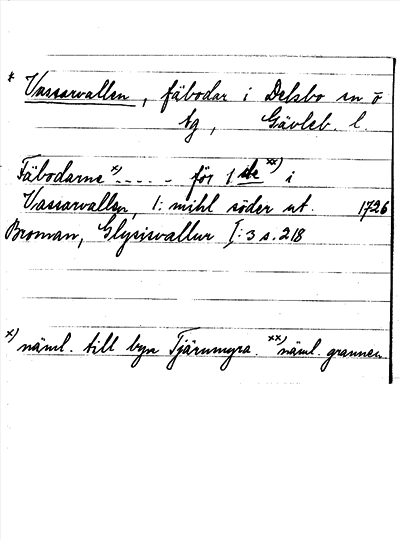 * Vassarvallen, fäbodar i Delsbo sn ö
tg, Gävleb. l.
Fäbodarne x) - - - - - för 1 ste xx) i
Vassarvallen, 1: mihl söder ut. 1726
Broman, Glysisvallur I:3 s. 218
x) näml. till byn Tjärnmyra. xx) näml. grannen